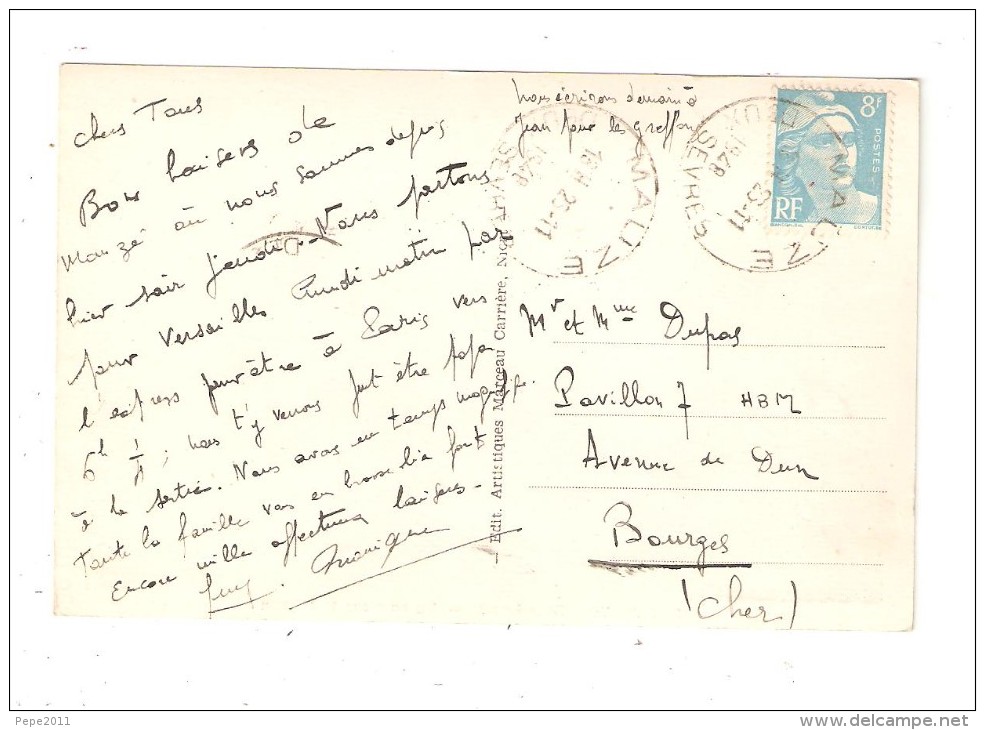 chers Tous
Bons baisers de
Mauzé où nous sommes depuis
hier soir jeudi. Nous partons
pour Versailles lundi matin par
l'express peut être à Paris vers
6h 1/4; nous t'y verrons peut être papa
à la sortie. Nous avons eu temps magnifique.
Toute la famille vous embrasse bien fort
Encore mille affectueux baisers-
nous écrirons demain à
Jean pour les greffons
8F
POSTES
RF
MAUZE
18H 25-11
1948
SEVRES
MAUZE
25-11
1948
DEUX SEVRES
— Edit. Artistiques Marceau Carrière, Niort
Mr et Mme Dupas
Pavillon 7 HBM
Avenue de Dun
Bourges
(Cher)
Pepe2011
www.delcampe.net